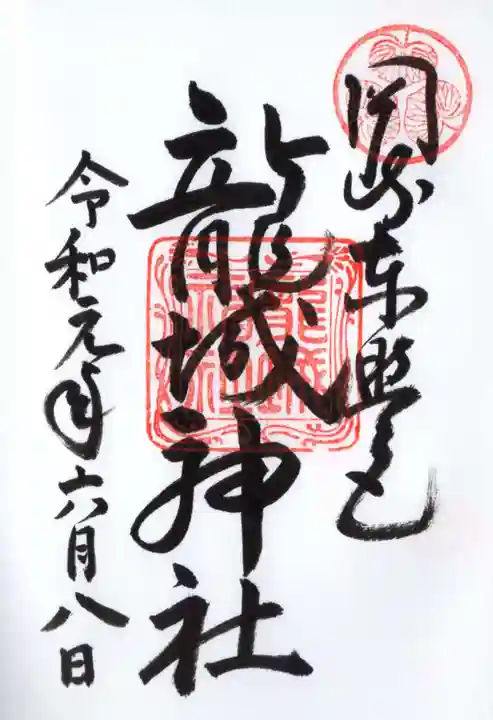 岡崎東照宮
龍城神社
令和元年六月八日